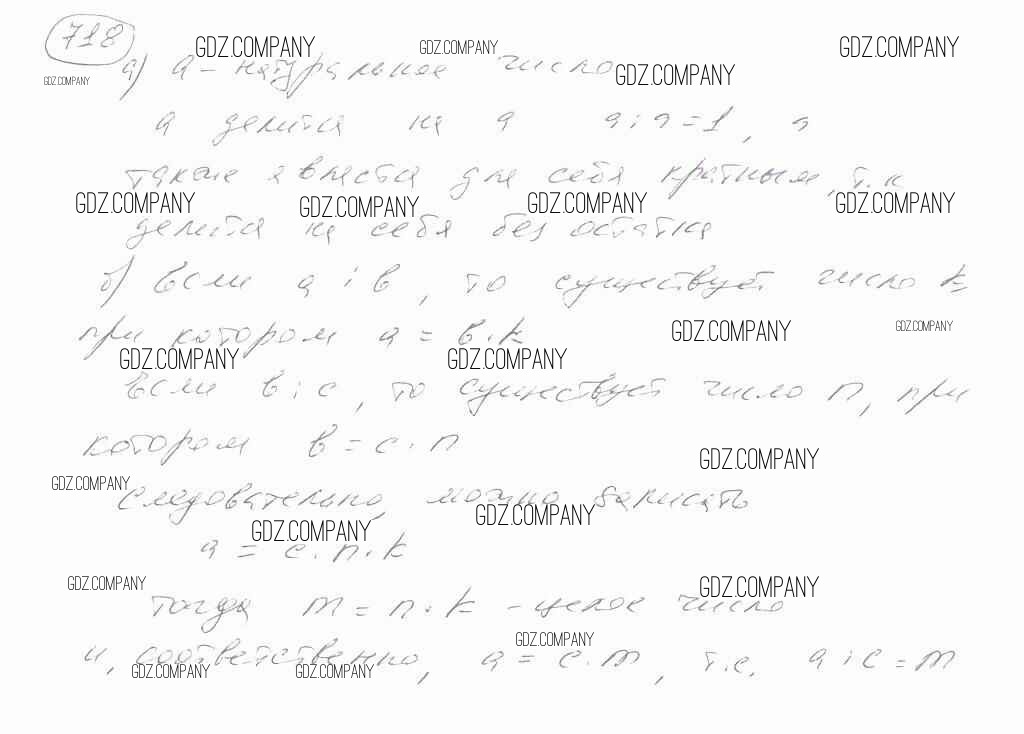 718
GDZ.COMPANY GDZ.COMPANY GDZ.COMPANY
GDZ.COMPANY GDZ.COMPANY
а) a – натуральное число
a делится на a a : a = 1, а
также является для себя кратным, т.к
GDZ.COMPANY GDZ.COMPANY GDZ.COMPANY GDZ.COMPANY
делится на себя без остатка
б) Если a : b, то существует число k,
при котором a = b · k
GDZ.COMPANY GDZ.COMPANY
GDZ.COMPANY GDZ.COMPANY
Если b : c, то существует число n, при
котором b = c · n
GDZ.COMPANY
GDZ.COMPANY
Следовательно, можно записать
GDZ.COMPANY GDZ.COMPANY
a = c · n · k
GDZ.COMPANY GDZ.COMPANY
Тогда m = n · k – целое число
GDZ.COMPANY
и, соответственно, a = c · m, т.е. a : c = m
GDZ.COMPANY GDZ.COMPANY